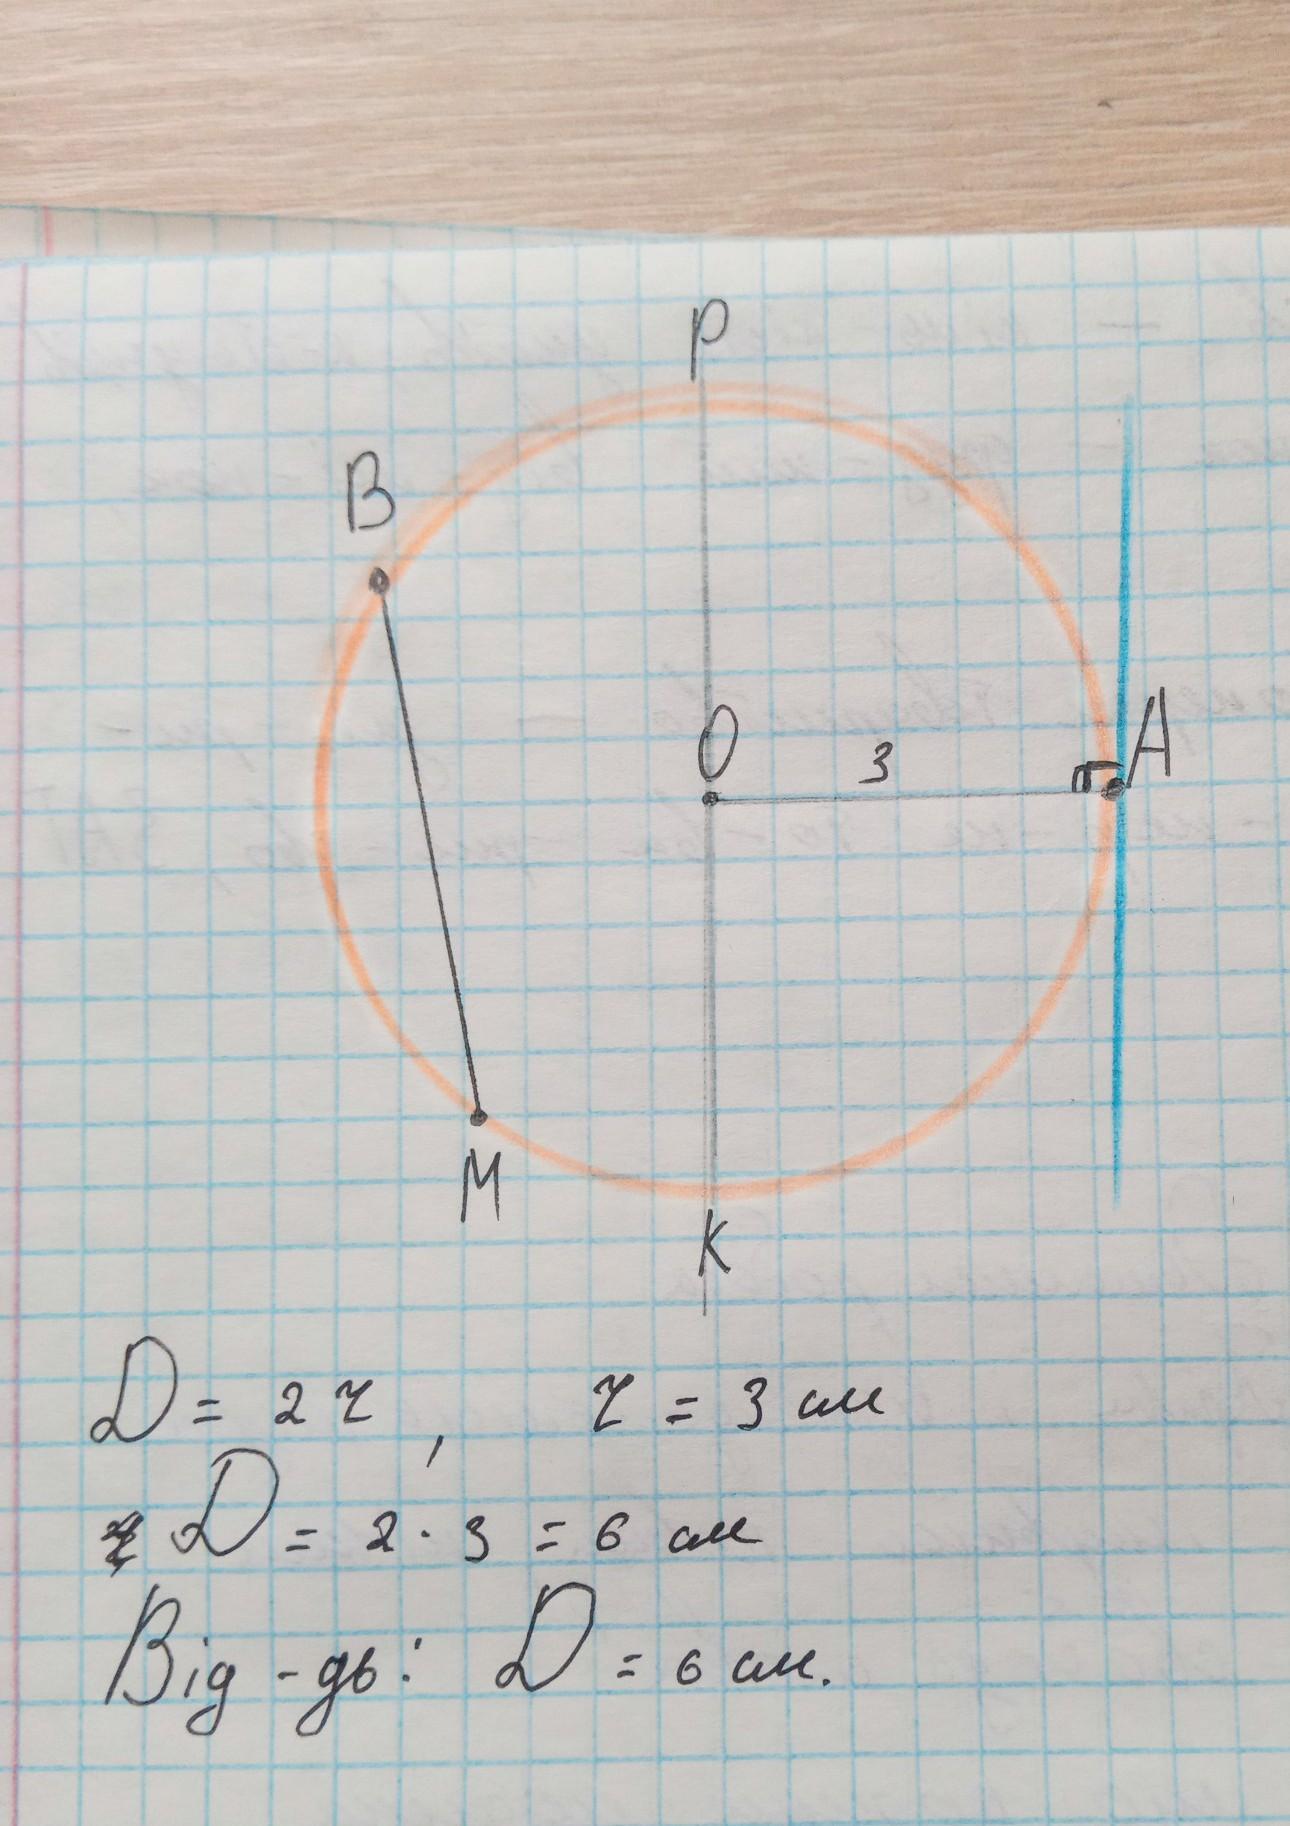 P
B
O
3
A
M
K
D = 2r, r = 3 см
D = 2 · 3 = 6 см
Від-дь: D = 6 см.